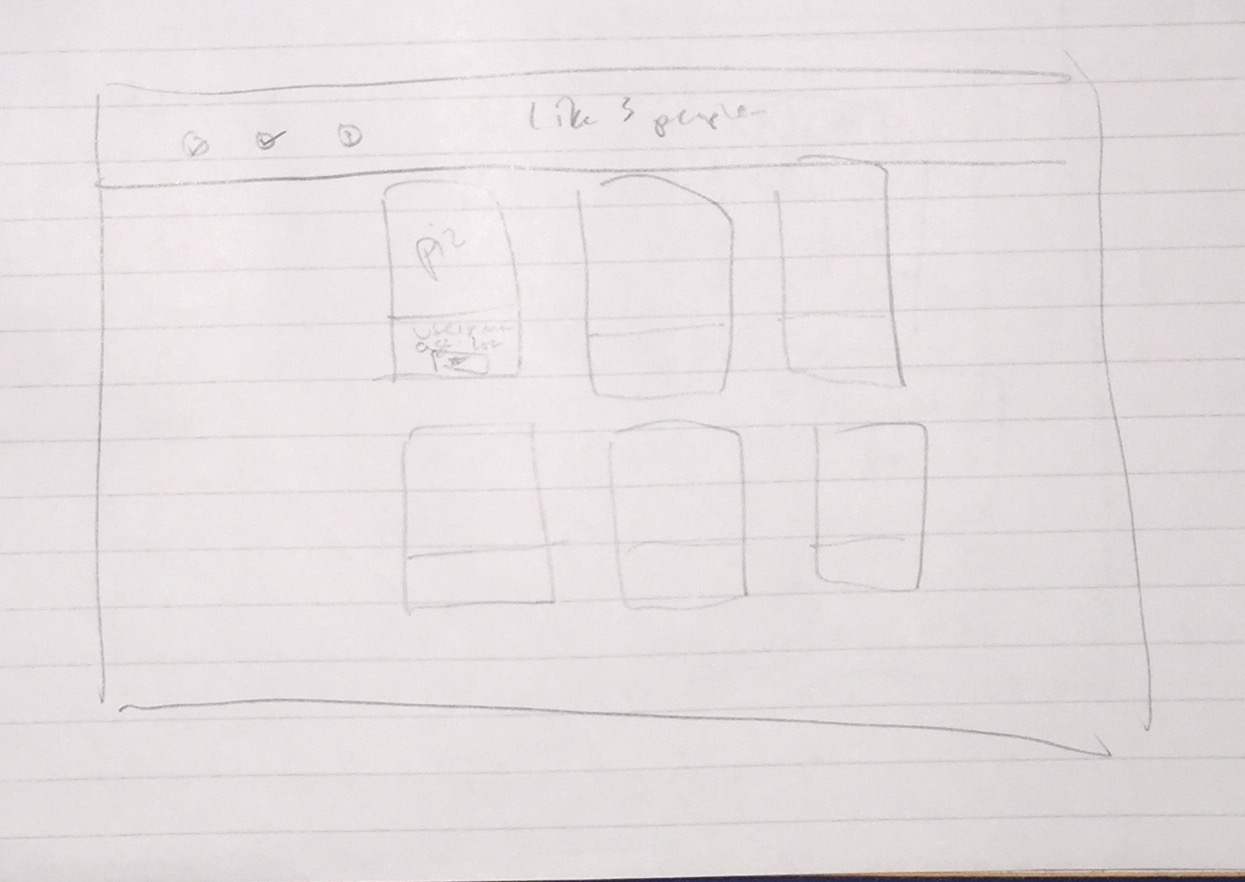 Like 3 people
pic
username
age loc